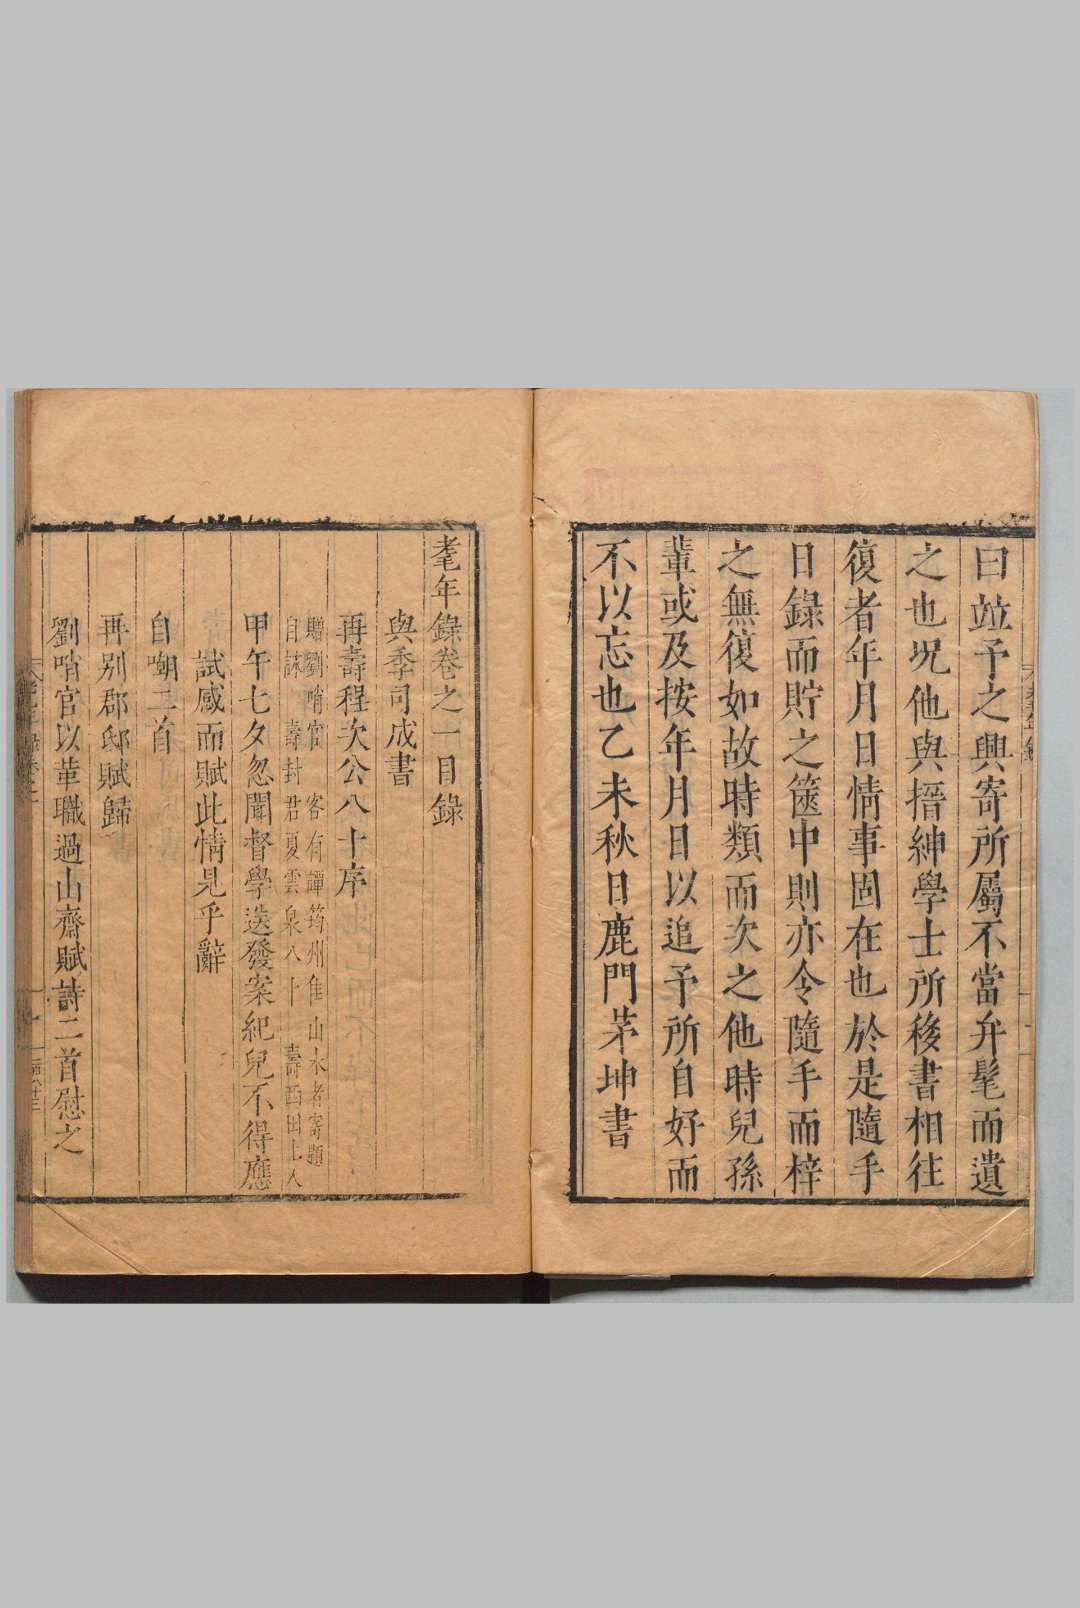 曰竝予之興寄所屬不當弁髦而遺
之也況他與搢紳學士所稜書相往
復者年月日情事固在也於是隨手
日錄而貯之篋中則亦令隨手而梓
之無復如故時類而次之他時兒孫
輩或及按年月日以追予所自好而
不以忘也乙未秋日鹿門茅坤書
耄年錄卷之一目錄
與季司成書
再壽程次公八十序
贈劉哨官 客有譚筠州佳山水者寄題
自詠 壽封君夏雲泉八十 壽西田上人
甲午七夕忽聞督學迭發案紀兒不得應
試感而賦此情見乎辭
自嘲二首
再別郡邸賦歸
劉哨官以革職過山齋賦詩二首慰之